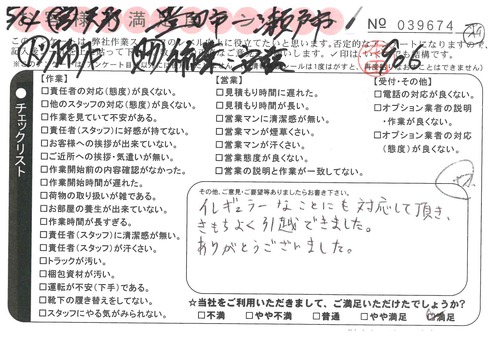 No 039674
チェックリスト
【作業】
□責任者の対応(態度)が良くない。
□他のスタッフの対応(態度)が良くない。
□作業を見ていて不安がある。
□責任者(スタッフ)に好感が持てない。
□お客様への挨拶が出来ていない。
□ご近所への挨拶・気遣いが無い。
□作業開始前の内容確認がなかった。
□作業開始時間が遅れた。
□荷物の取り扱いが雑である。
□お部屋の養生が出来ていない。
□作業時間が長すぎる。
□責任者(スタッフ)に清潔感が無い。
□責任者(スタッフ)が汗くさい。
□トラックが汚い。
□梱包資材が汚い。
□運転が不安(下手)である。
□靴下の履き替えをしてない。
□スタッフにやる気がみられない。
【営業】
□見積もり時間に遅れた。
□見積もり時間が長い。
□営業マンに清潔感が無い。
□営業マンが煙草くさい。
□営業マンが汗くさい。
□営業態度が良くない。
□営業の説明と作業が一致してない。
【受付・その他】
□電話の対応が良くない。
□オプション業者の説明
・作業が良くない。
□オプション業者の対応
(態度)が良くない。
その他、ご意見・ご要望等ありましたらお書き下さい。
イレギュラーなことにも対応して頂き、
きもちよく引越できました。
ありがとうございました。
☆当社をご利用いただきまして、ご満足いただけたでしょうか?
□不満 □やや不満 □普通 □やや満足 □満足